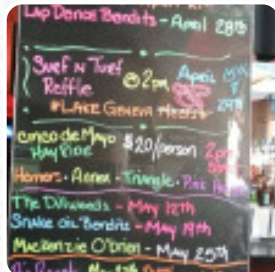 Lap Dance Bandits - April 28th
Surf N Turf
Raffle @ 2pm April
#LAKE GENEVA Meats 29th
Cinco de Mayo
Hay Ride $20/person 2pm
Homers · Annex · Triangle · Pink
The Dillweeds - May 12th
Snake Oil Bandits - May 19th
Mackenzie O'Brien - May 25th